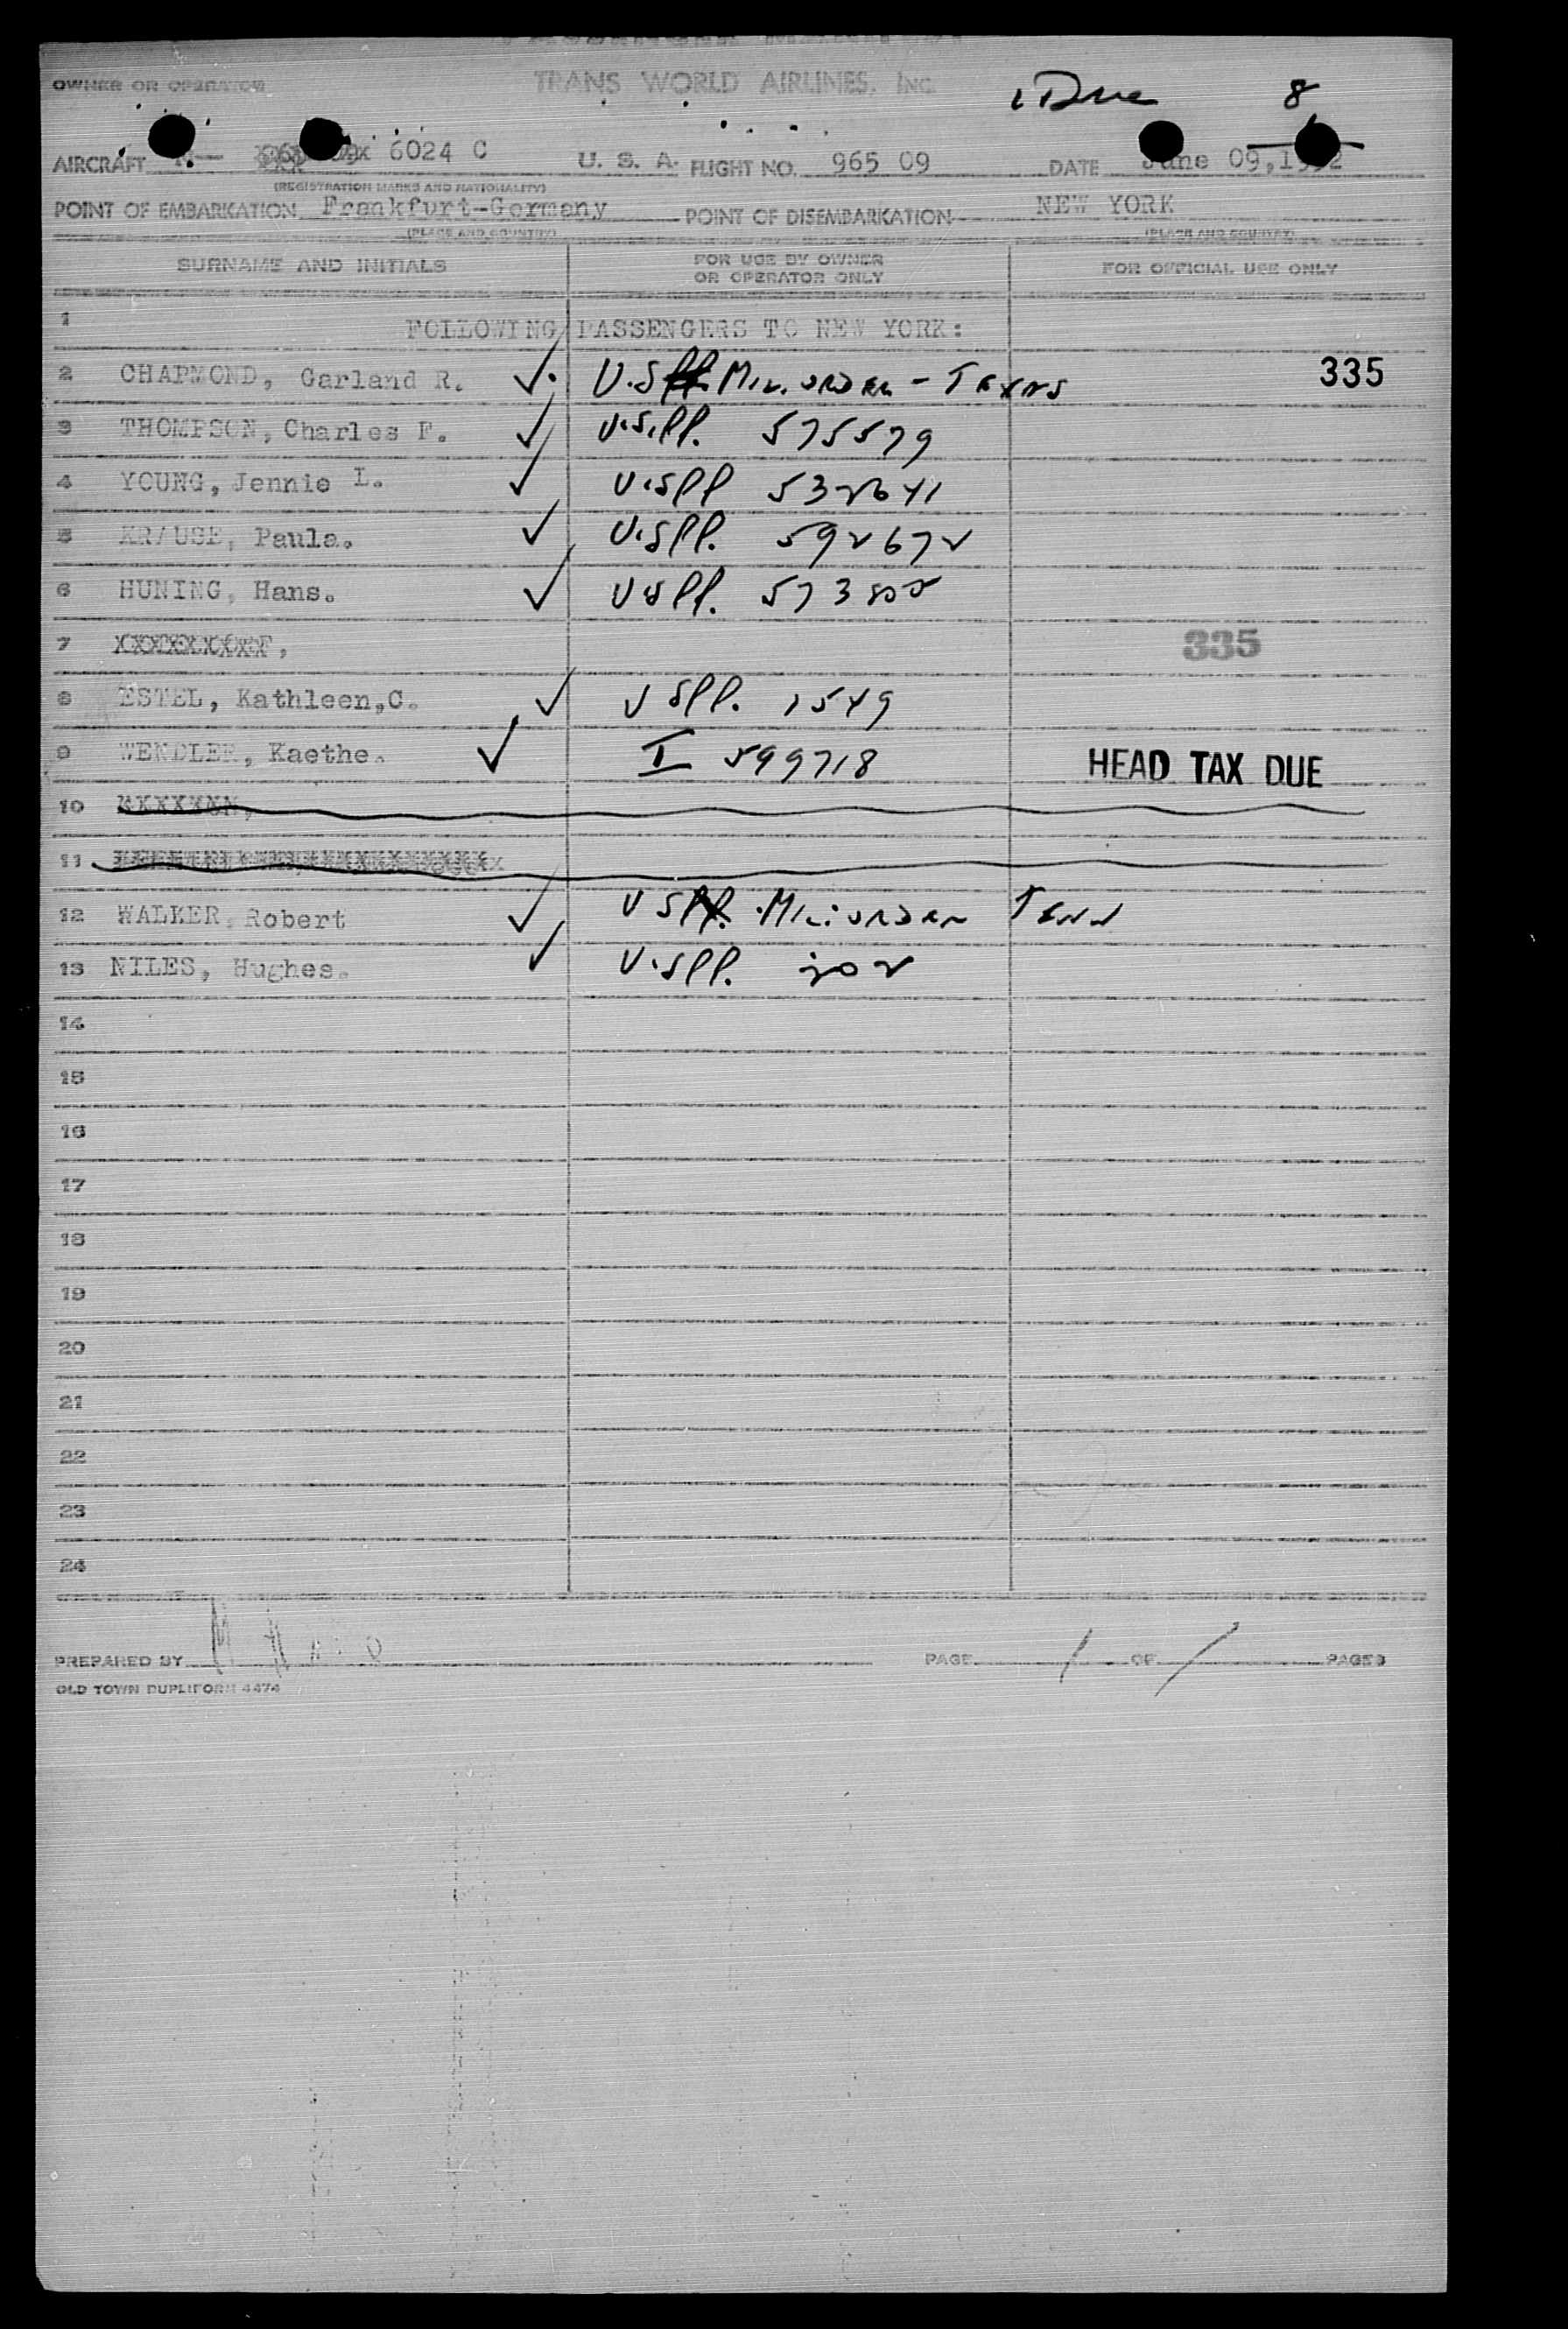 OWNER OR OPERATOR TRANS WORLD AIRLINES, Inc. 1 Due 8
AIRCRAFT 6024 C U. S. A. FLIGHT NO. 965 09 DATE June 09,1952
(REGISTRATION MARKS AND NATIONALITY)
POINT OF EMBARKATION Frankfurt-Germany POINT OF DISEMBARKATION NEW YORK
(PLACE AND COUNTRY) (PLACE AND COUNTRY)
SURNAME AND INITIALS FOR USE BY OWNER OR OPERATOR ONLY FOR OFFICIAL USE ONLY
1 FOLLOWING PASSENGERS TO NEW YORK:
2 CHAPMOND, Garland R. ✓. U.S. Mil. order - Texas 335
3 THOMPSON, Charles F. ✓ U.S.PP. 575579
4 YOUNG, Jennie L. ✓ U.SPP 532641
5 KRAUSE, Paula. ✓ U.SPP. 592672
6 HUNING, Hans. ✓ USPP. 573802
7 335
8 ESTEL, Kathleen,C. ✓ USPP. 1549
9 WENDLER, Kaethe. ✓ I 599718 HEAD TAX DUE
10
11
12 WALKER, Robert ✓ US Mil. order Tenn
13 NILES, Hughes. ✓ U.SPP. 202
14
15
16
17
18
19
20
21
22
23
24
PREPARED BY PAGE 1 OF 1 PAGES
OLD TOWN DUPLIFORM 4474